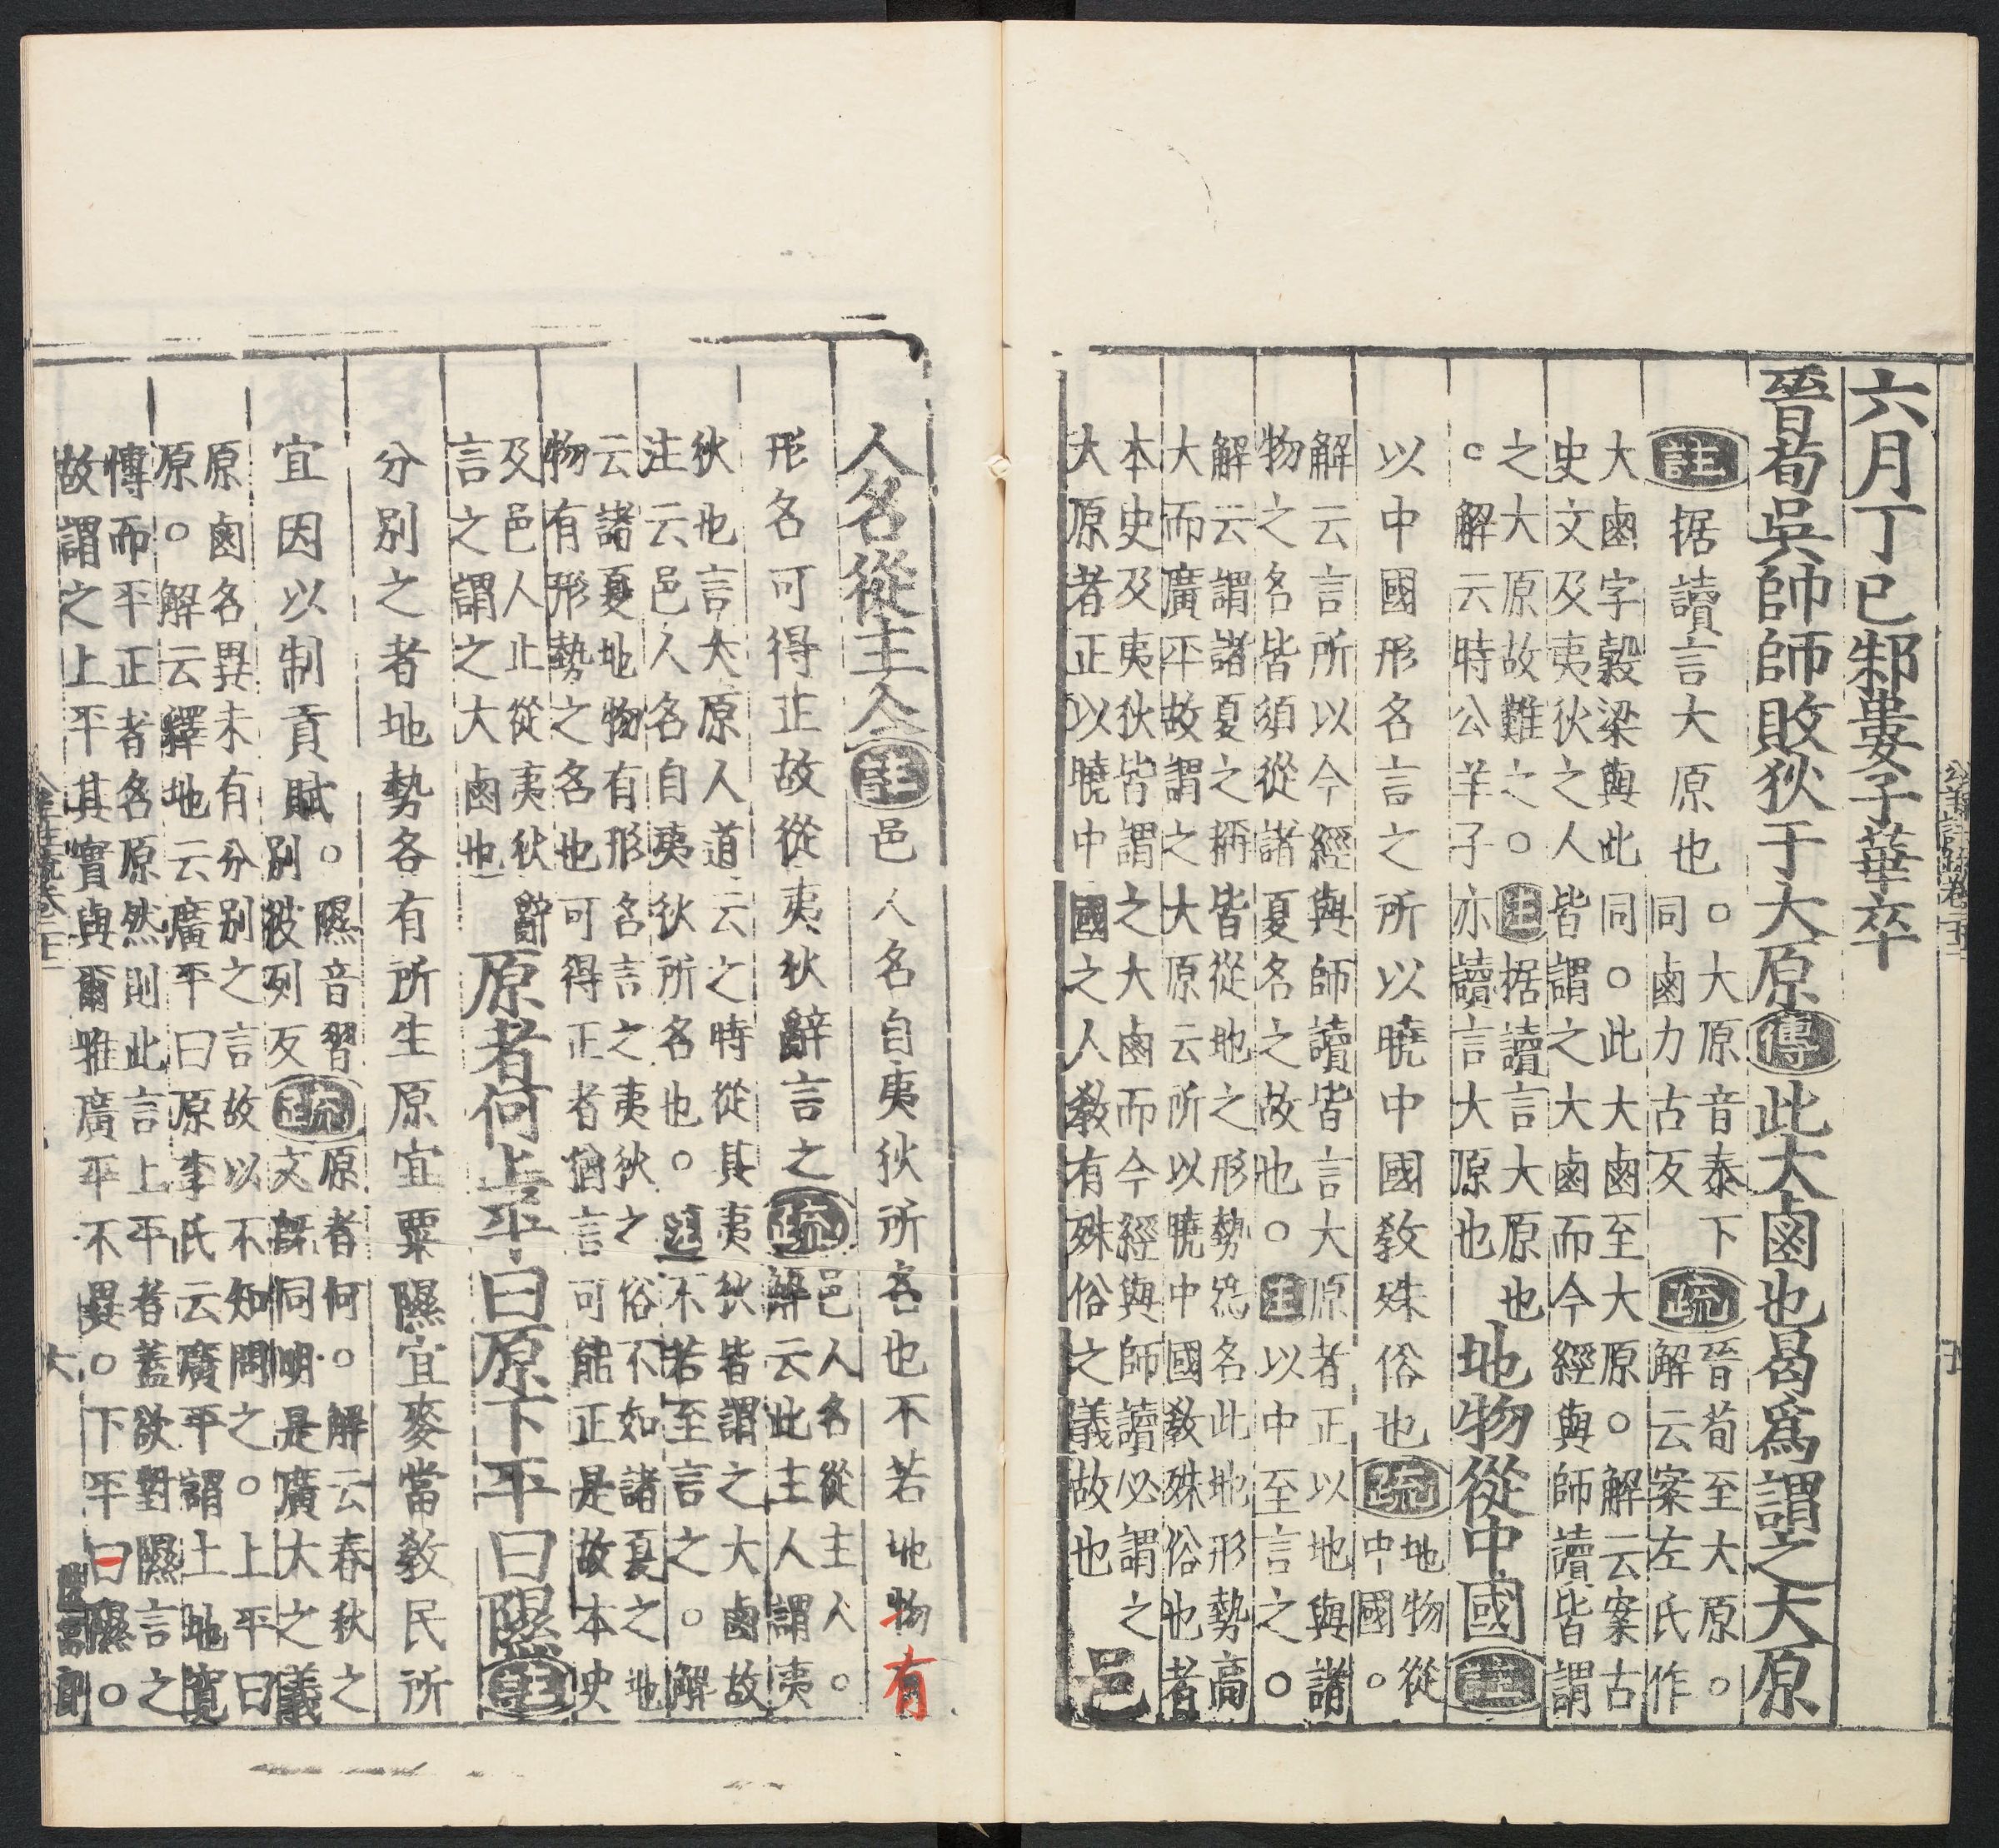 六月丁巳邾婁子華卒
晉荀吳帥師敗狄于大原傳此大鹵也曷爲謂之大原
註据讀言大原也。大原音泰下
同鹵力古反
疏晉荀至大原。
解云案左氏作
大鹵字穀梁與此同。此大鹵至大原。解云案古
史文及夷狄之人皆謂之大鹵而今經與師讀皆謂
之大原故難之。註据讀言大原也
。解云時公羊子亦讀言大原也
地物從中國註
以中國形名言之所以曉中國教殊俗也疏地物從
中國。
解云言所以今經與師讀皆言大原者正以地與諸
物之名皆須從諸夏名之故也。註以中至言之。
解云謂諸夏之稱皆從地之形勢爲名此地形勢高
大而廣平故謂之大原云所以曉中國教殊俗也者
本史及夷狄皆謂之大鹵而今經與師讀必謂之
大原者正以曉中國之人教有殊俗之儀故也
邑
人名從主人註邑人名自夷狄所名也不若地物有
形名可得正故從夷狄辭言之疏邑人名從主人。
解云此主人謂夷
狄也言大原人道云之時從其夷狄皆謂之大鹵故
注云邑人名自夷狄所名也。註不若至言之。解
云諸夏地物有形名言之夷狄之俗不如諸夏之地
物有形勢之名也可得正者猶言可能正是故本史
及邑人止從夷狄辭
言之謂之大鹵也
原者何上平曰原下平曰隰註
分別之者地勢各有所生原宜粟隰宜麥當教民所
宜因以制貢賦。隰音習
別彼列反
疏原者何。解云春秋之
文既同明是廣大之儀
原鹵名異未有分別之言故以不知問之。上平曰
原。解云釋地云廣平曰原李氏云廣平謂土地寬
慱而平正者名原然則此言上平者蓋欲對隰言之
故謂之上平其實與爾雅廣平不異。下平曰隰。